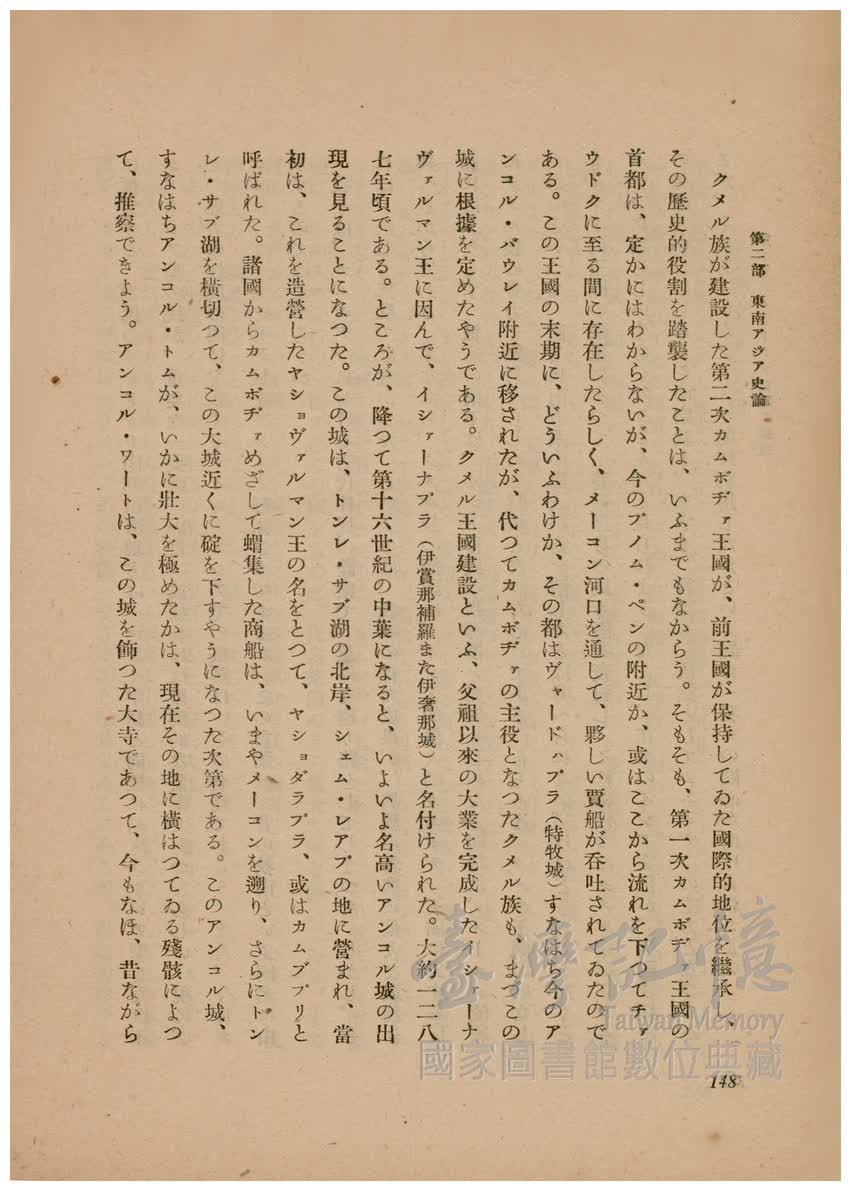 第二部　東南アジア史論
クメル族が建設した第二次カムボヂァ王國が、前王國が保持してゐた國際的地位を繼承し、
その歷史的役割を踏襲したことは、いふまでもなからう。そもそも、第一次カムボヂァ王國の
首都は、定かにはわからないが、今のプノム・ペンの附近か、或はここから流れを下つてチァ
ウドクに至る間に存在したらしく、メーコン河口を通して、夥しい賈船が吞吐されてゐたので
ある。この王國の末期に、どういふわけか、その都はヴャードハプラ（特牧城）すなはち今のア
ンコル・バウレイ附近に移されたが、代つてカムボヂァの主役となつたクメル族も、まづこの
城に根據を定めたやうである。クメル王國建設といふ、父祖以來の大業を完成したイシァーナ
ヴァルマン王に因んで、イシァーナプラ（伊賞那補羅また伊奢那城）と名付けられた。大約一二八
七年頃である。ところが、降つて第十六世紀の中葉になると、いよいよ名高いアンコル城の出
現を見ることになつた。この城は、トンレ・サブ湖の北岸、シェム・レアプの地に營まれ、當
初は、これを造營したヤショヴァルマン王の名をとつて、ヤショダラプラ、或はカムブプリと
呼ばれた。諸國からカムボヂァめざして蝟集した商船は、いまやメーコンを遡り、さらにトン
レ・サブ湖を橫切つて、この大城近くに碇を下すやうになつた次第である。このアンコル城、
すなはちアンコル・トムが、いかに壯大を極めたかは、現在その地に橫はつてゐる殘骸によつ
て、推察できよう。アンコル・ワートは、この城を飾つた大寺であつて、今もなほ、昔ながら
148
臺灣記憶
Taiwan Memory
國家圖書館數位典藏